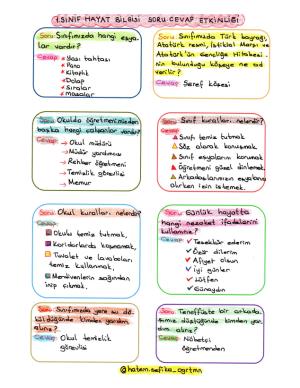 1.SINIF HAYAT BİLGİSİ SORU CEVAP ETKİNLİĞİ
Soru: Sınıfımızda hangi eşya-
lar vardır?
Cevap:
Yazı tahtası
Pano
Kitaplık
Dolap
Sıralar
Masalar
Soru: Sınıfımızda Türk bayrağı,
Atatürk resmi, İstiklal Marşı ve
Atatürk'ün Gençliğe Hitabesi-
nin bulunduğu köşeye ne ad
verilir?
Cevap: Şeref köşesi
Soru: Okulda öğretmenimizden
başka hangi çalışanlar vardır?
Cevap:
→ Okul müdürü
→ Müdür yardımcısı
→ Rehber öğretmeni
→ Temizlik görevlisi
→ Memur
Soru: Sınıf kuralları nelerdir?
Cevap:
Sınıfı temiz tutmak
Söz alarak konuşmak
Sınıf eşyalarını korumak
Öğretmeni güzel dinlemek
Arkadaşlarımızın eşyasını
alırken izin istemek.
Soru: Okul kuralları nelerdir?
Cevap:
Okulu temiz tutmak,
Koridorlarda koşmamak,
Tuvalet ve lavaboları
temiz kullanmak,
Merdivenlerin sağından
inip çıkmak.
Soru: Günlük hayatta
hangi nezaket ifadelerini
kullanırız?
Cevap:
✓ Teşekkür ederim
✓ Özür dilerim
✓ Afiyet olsun
✓ İyi günler
✓ Lütfen
✓ Günaydın
Soru: Sınıfımızda yere su dö-
küldüğünde kimden yardım
alırız?
Cevap: Okul temizlik
görevlisi
Soru: Teneffüste bir arkada-
şımız düştüğünde kimden yar-
dım alırız?
Cevap: Nöbetçi
öğretmenden
@hatem.sefika_ogrtmn